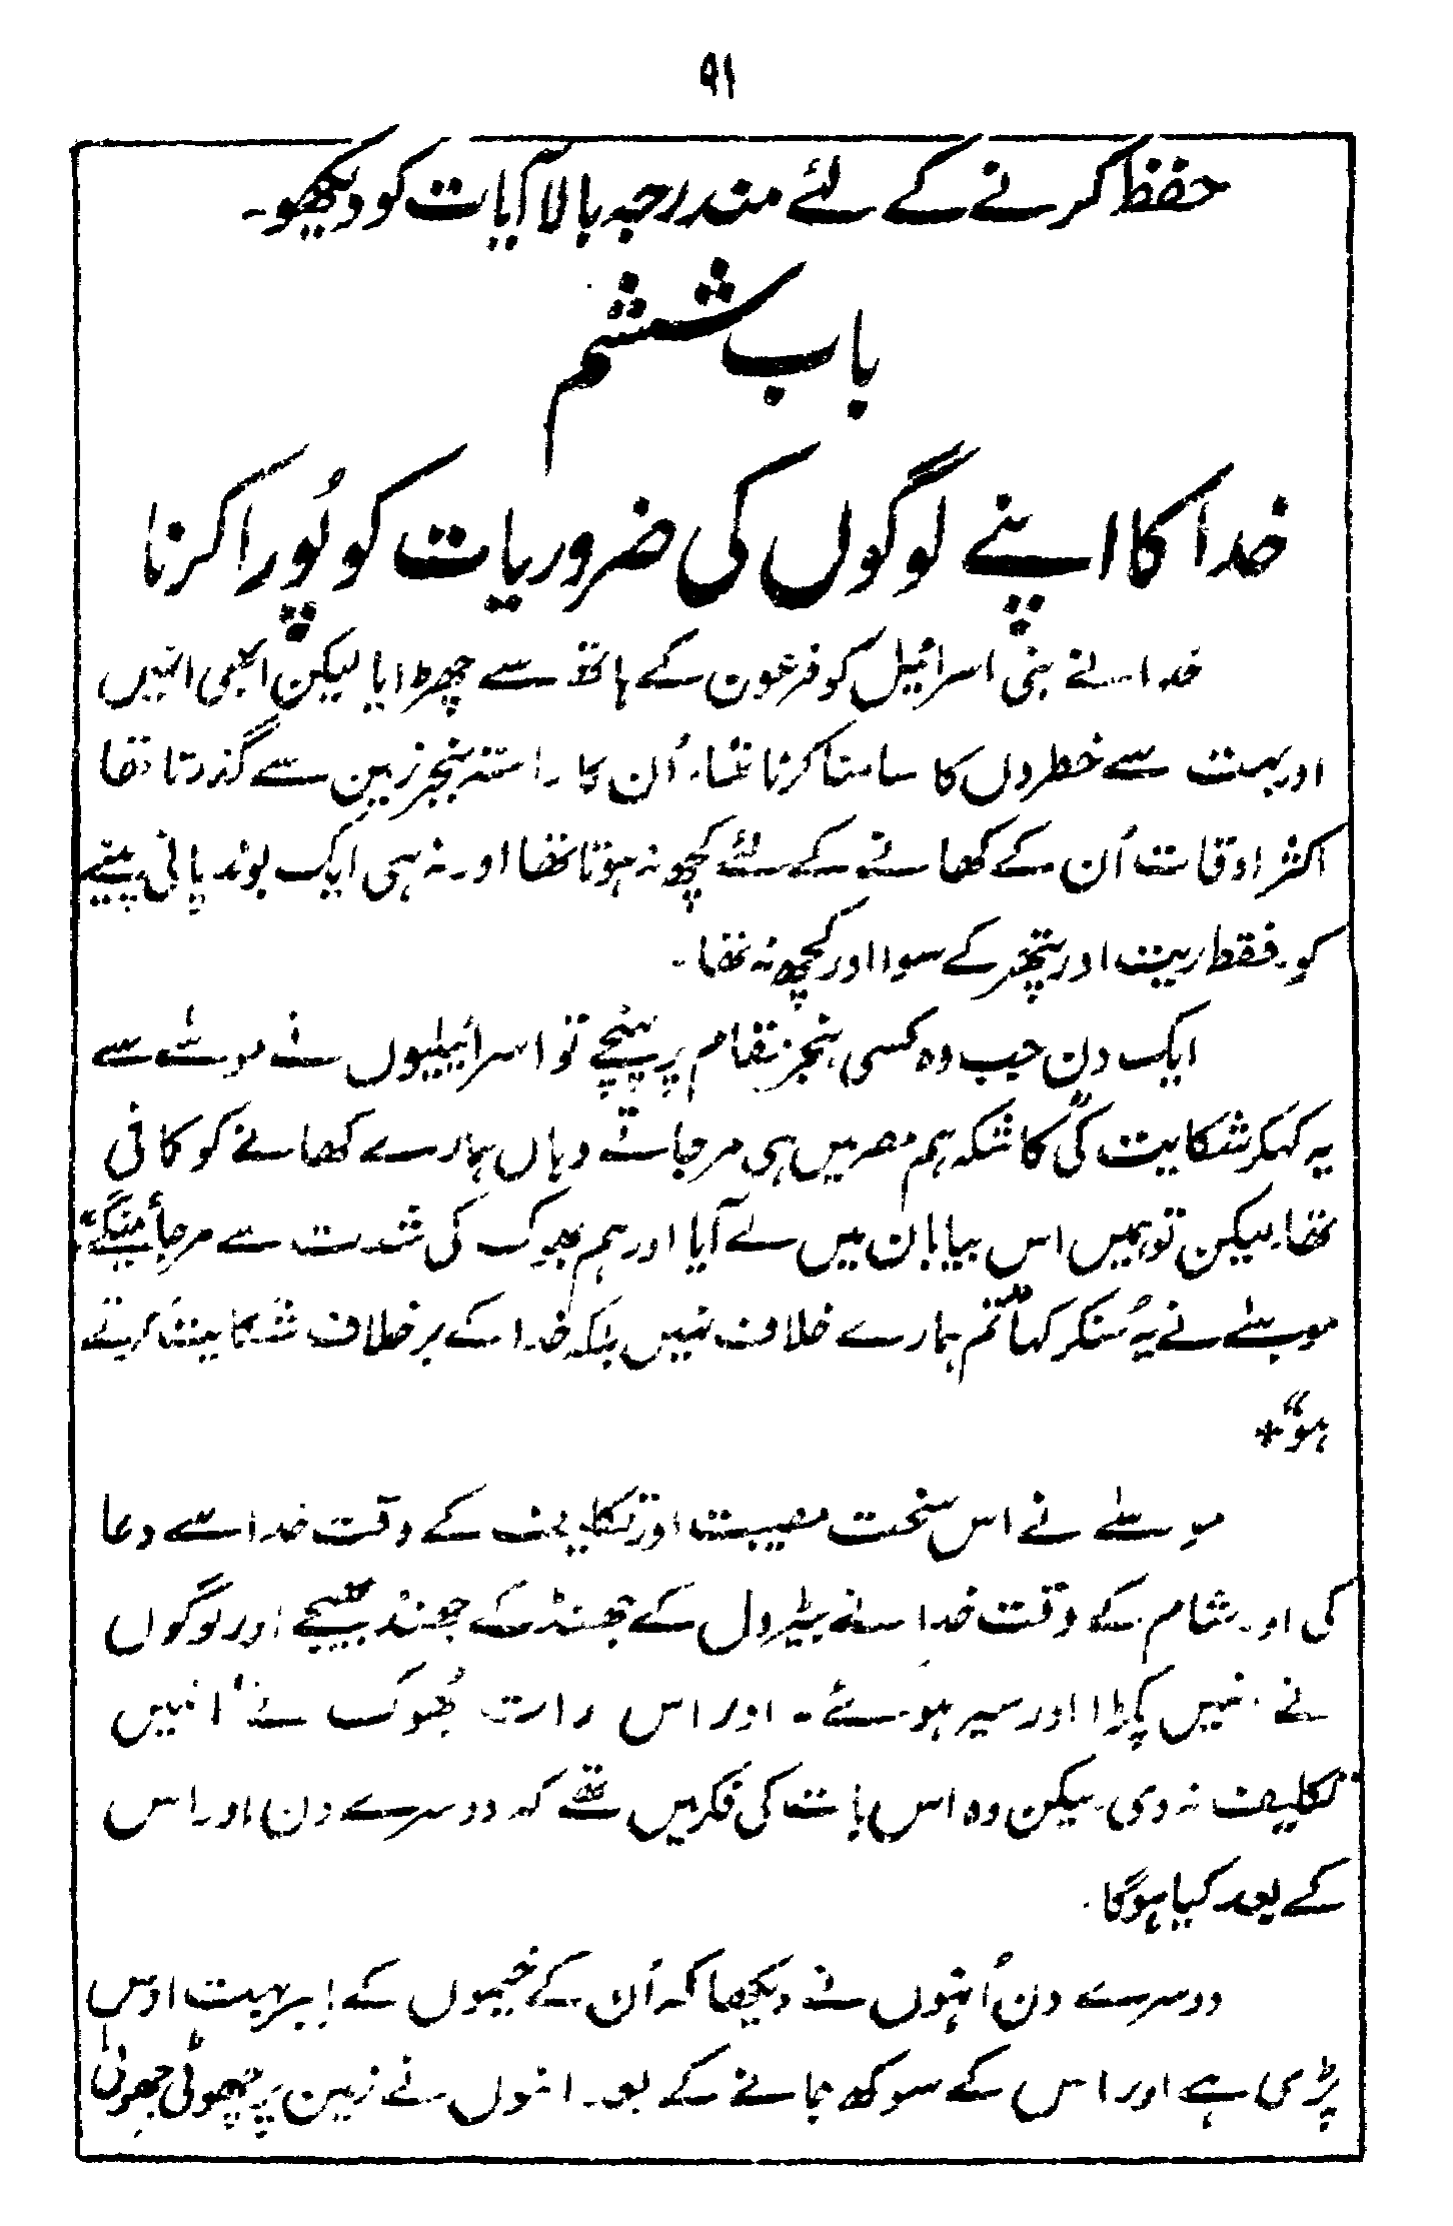 ۹۱
حفظ کرنے کے لئے مندرجہ بالا آیات کو دیکھو۔
باب ششم
خدا کا اپنے لوگوں کی ضروریات کو پُورا کرنا
خدا نے بنی اسرائیل کو فرعون کے ہاتھ سے چھڑایا لیکن ابھی انہیں
اور بہت سے خطروں کا سامنا کرنا تھا۔ اُن کا راستہ بنجر زمین سے گذرتا تھا
اکثر اوقات اُن کے کھانے کے لئے کچھ نہ ہوتا تھا اور نہ ہی ایک بوند پانی پینے
کو۔ فقط ریت اور پتھر کے سوا اور کچھ نہ تھا۔
ایک دن جب وہ کسی بنجر مقام پر پہنچے تو اسرائیلیوں نے موسےٰ سے
یہ کہکر شکایت کی “کاشکہ ہم مصر میں ہی مر جاتے وہاں ہمارے کھانے کو کافی
تھا۔ لیکن تو ہمیں اس بیابان میں لے آیا اور ہم بھوک کی شدت سے مر جائینگے”
موسےٰ نے یہ سُنکر کہا “تم ہمارے خلاف نہیں بلکہ خدا کے برخلاف شکایت کرتے
ہو” *
موسےٰ نے اس سخت مصیبت اور تکلیف کے وقت خدا سے دعا
کی اور شام کے وقت خدا نے بٹیروں کے جھنڈ کے جھنڈ بھیجے اور لوگوں
نے انہیں پکڑا اور سیر ہوئے۔ اور اس رات بُھوک نے انہیں
تکلیف نہ دی۔ لیکن وہ اس بات کی فکر میں تھے کہ دوسرے دن اور اس
کے بعد کیا ہوگا۔
دوسرے دن اُنہوں نے دیکھا کہ اُن کے خیموں کے باہر بہت اوس
پڑی ہے اور اس کے سوکھ جانے کے بعد انہوں نے زمین پر چھوٹی چھوٹی